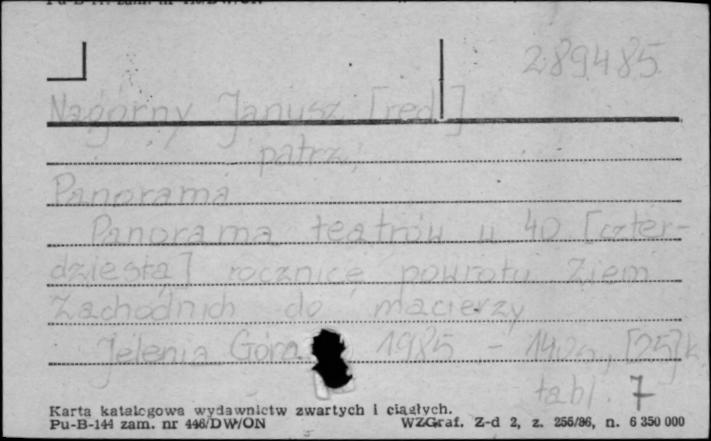 289485
Nagórny Janusz [red.]
patrz:
Panorama
Panorama teatrów w 40 [czter-
dziestą] rocznicę powrotu Ziem
Zachodnich do macierzy
Jelenia Góra 1985 - [25] k.
tabl. 7
Karta katalogowa wydawnictw zwartych i ciągłych.
Pu-B-144 zam. nr 446/DW/ON WZGraf. Z-d 2, z. 256/86, n. 6 350 000